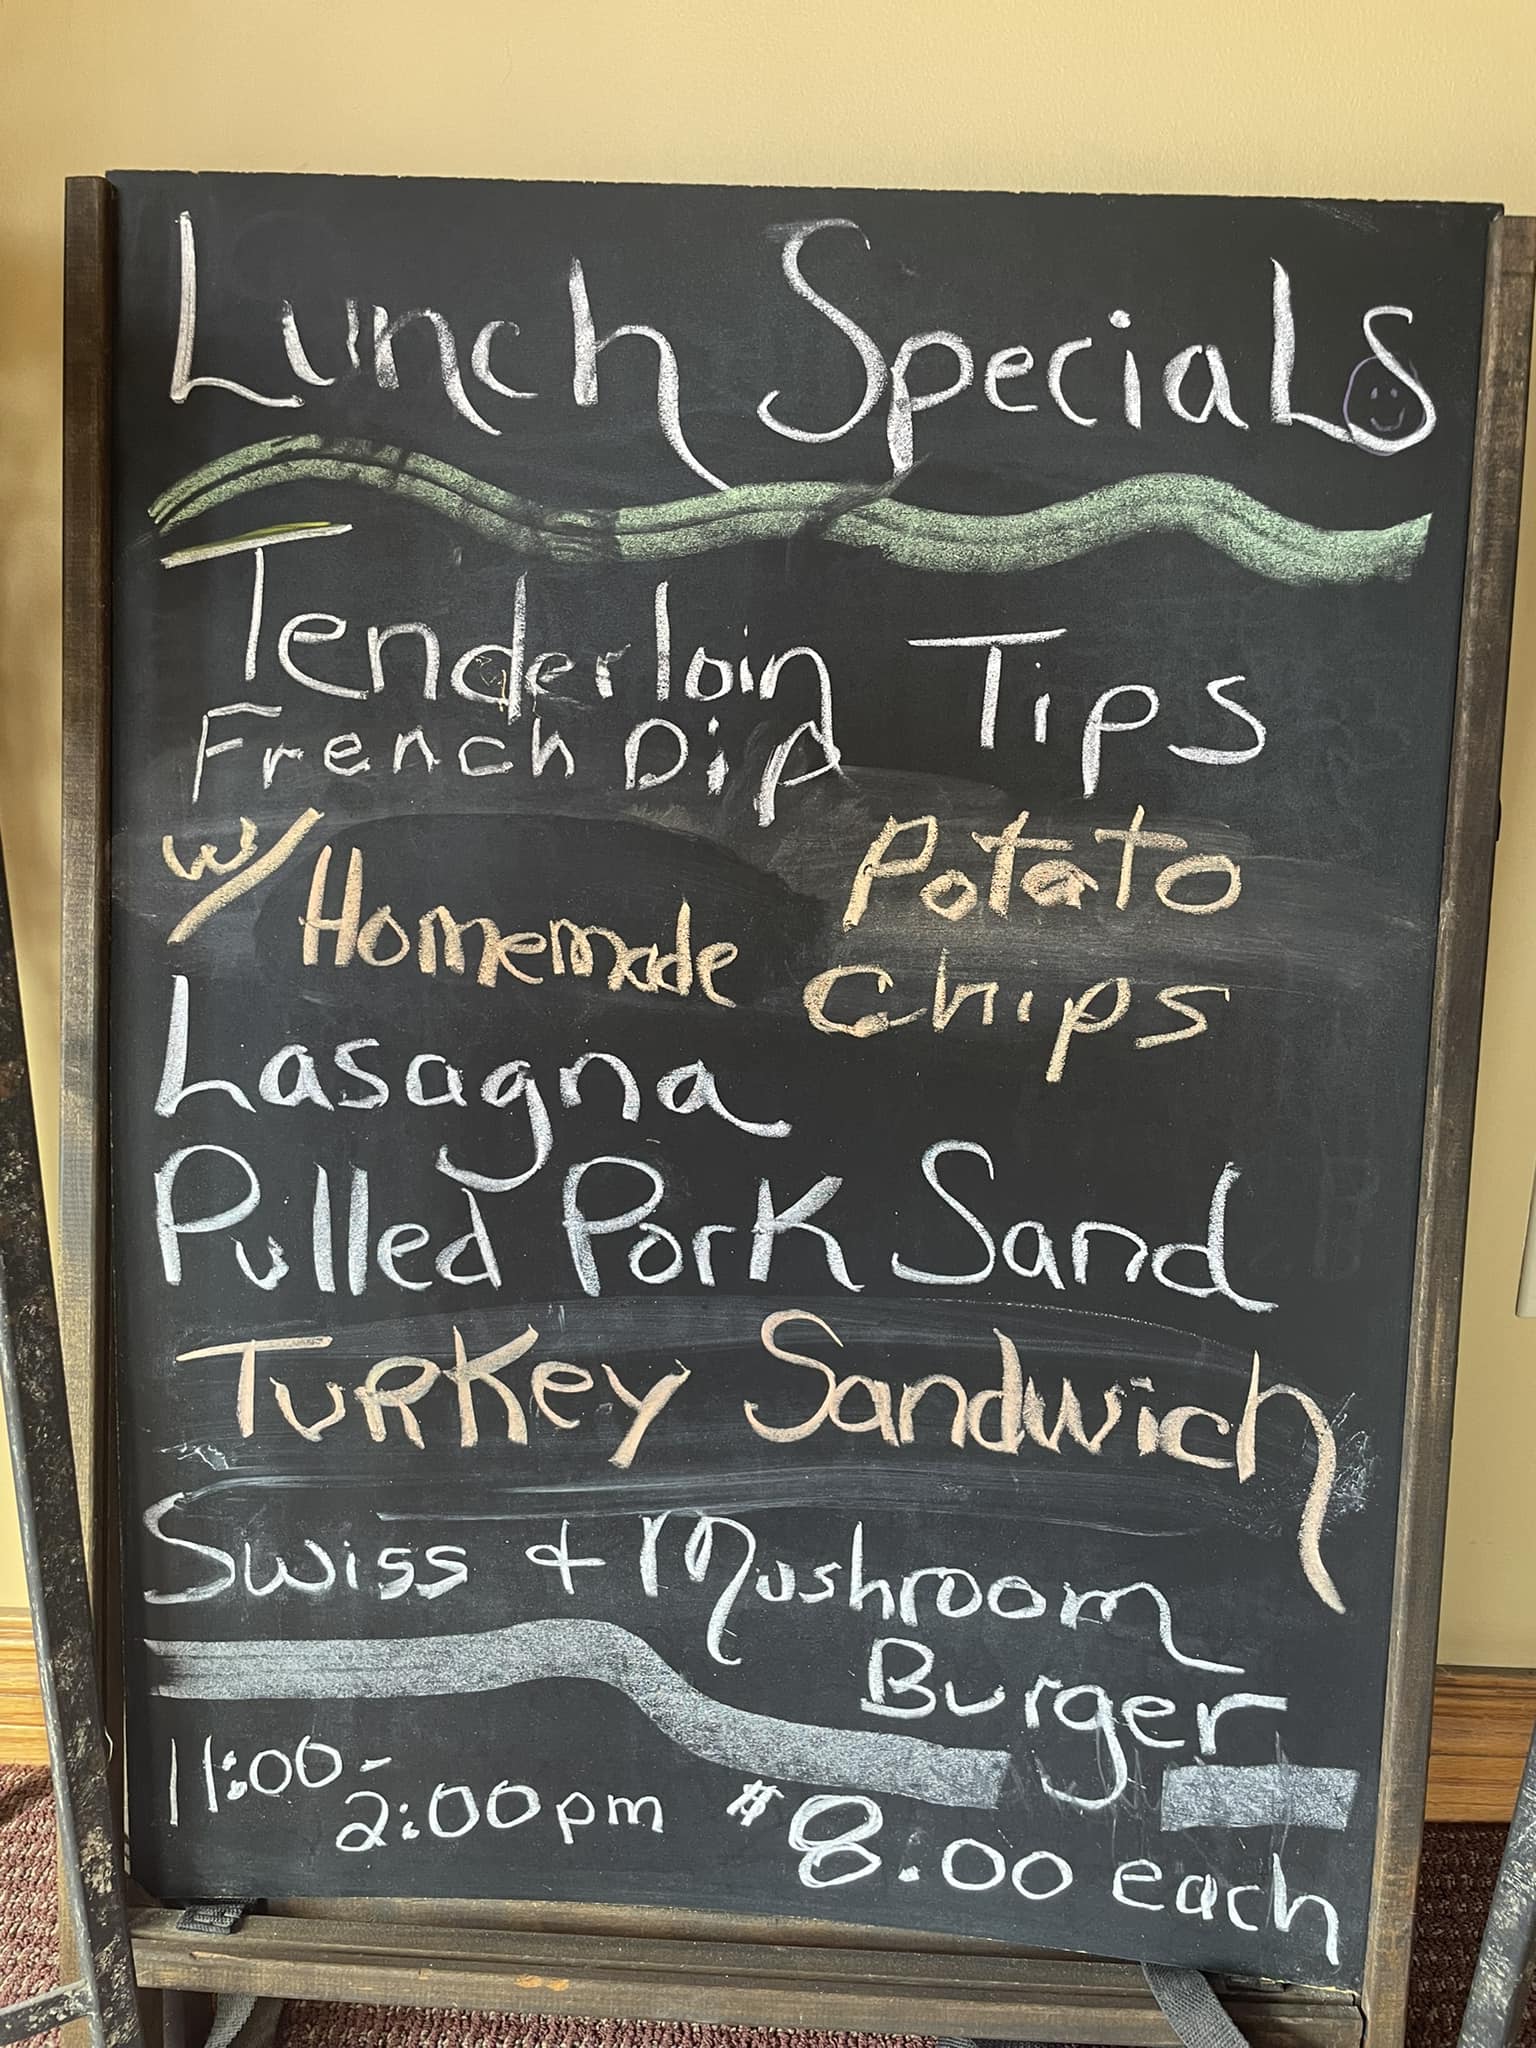 Lunch Specials
Tenderloin Tips
French Dip
w/ Homemade Potato Chips
Lasagna
Pulled Pork Sand
Turkey Sandwich
Swiss + Mushroom
Burger
11:00-2:00pm $8.00 each